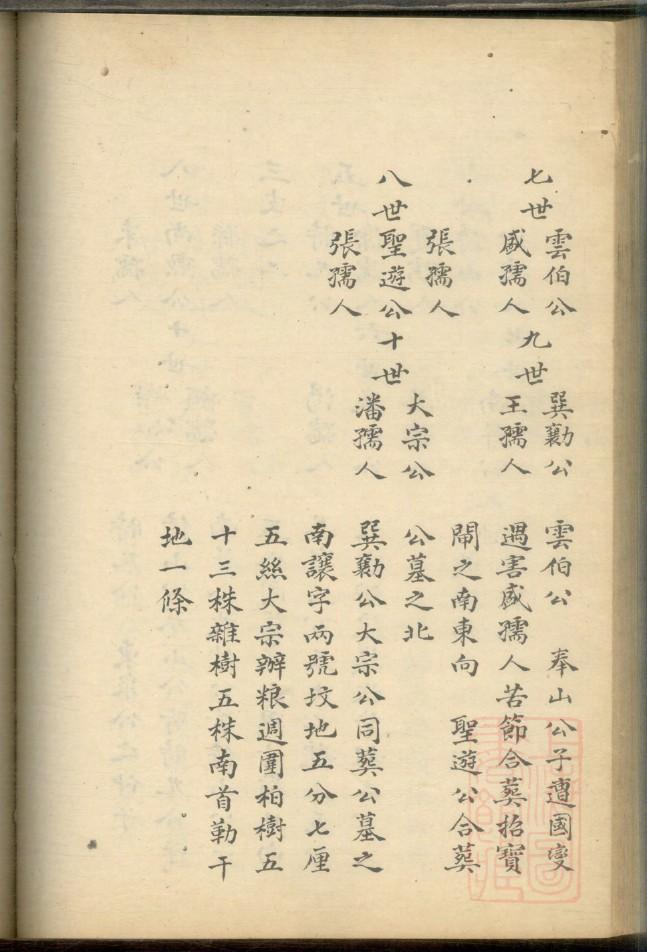 七世
雲伯公
盛孺人
張孺人
八世聖遊公
張孺人
九世
巽勷公
王孺人
十世
大宗公
潘孺人
雲伯公　奉山公子遭國變
遇害盛孺人苦節合葬招寶
閘之南東向　聖遊公合葬
公墓之北
巽勷公大宗公同葬公墓之
南讓字兩號坟地五分七厘
五絲大宗辦粮週圍柏樹五
十三株雜樹五株南首勒干
地一條